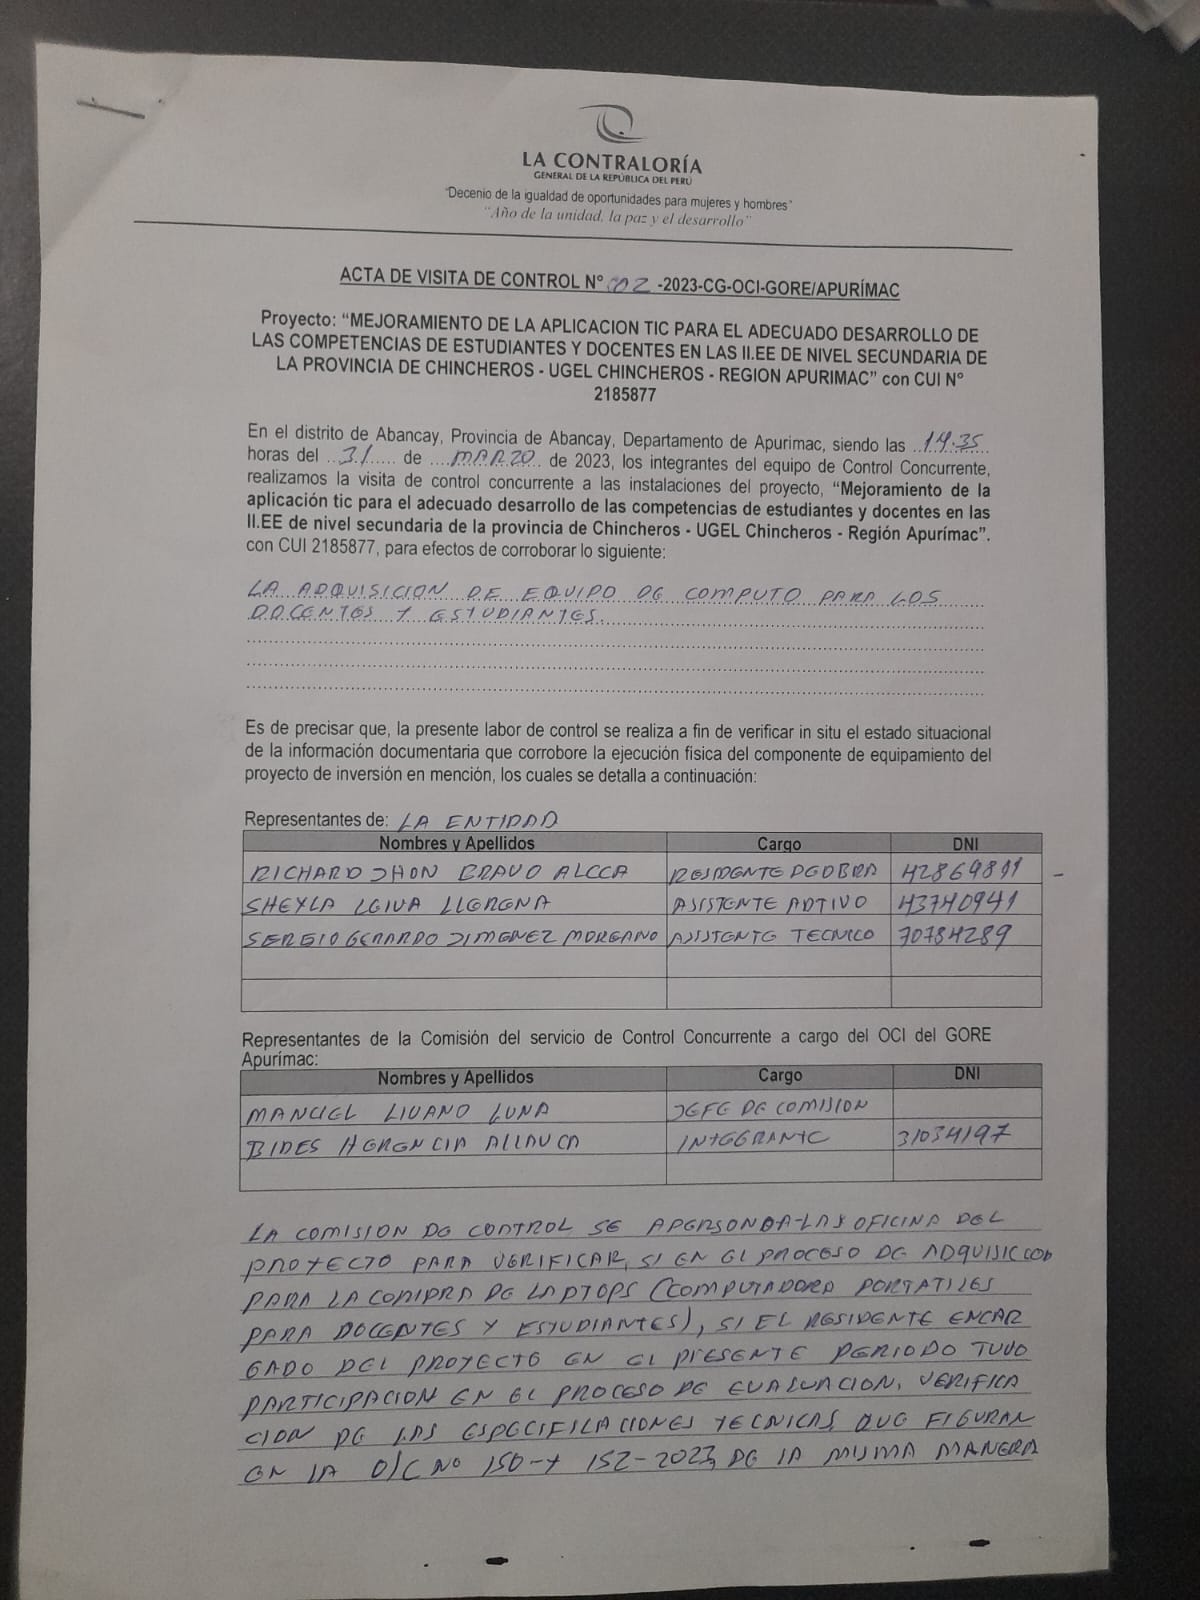 LA CONTRALORÍA
GENERAL DE LA REPÚBLICA DEL PERÚ
"Decenio de la igualdad de oportunidades para mujeres y hombres"
"Año de la unidad, la paz y el desarrollo"
ACTA DE VISITA DE CONTROL N° 002 -2023-CG-OCI-GORE/APURÍMAC
Proyecto: "MEJORAMIENTO DE LA APLICACION TIC PARA EL ADECUADO DESARROLLO DE
LAS COMPETENCIAS DE ESTUDIANTES Y DOCENTES EN LAS II.EE DE NIVEL SECUNDARIA DE
LA PROVINCIA DE CHINCHEROS - UGEL CHINCHEROS - REGION APURIMAC" con CUI N°
2185877
En el distrito de Abancay, Provincia de Abancay, Departamento de Apurimac, siendo las 14:35
horas del 31 de MARZO de 2023, los integrantes del equipo de Control Concurrente,
realizamos la visita de control concurrente a las instalaciones del proyecto, "Mejoramiento de la
aplicación tic para el adecuado desarrollo de las competencias de estudiantes y docentes en las
II.EE de nivel secundaria de la provincia de Chincheros - UGEL Chincheros - Región Apurímac".
con CUI 2185877, para efectos de corroborar lo siguiente:
LA ADQUISICION DE EQUIPO DE COMPUTO PARA LOS
DOCENTES Y ESTUDIANTES.
Es de precisar que, la presente labor de control se realiza a fin de verificar in situ el estado situacional
de la información documentaria que corrobore la ejecución física del componente de equipamiento del
proyecto de inversión en mención, los cuales se detalla a continuación:
Representantes de: LA ENTIDAD
Nombres y Apellidos Cargo DNI
RICHARD JHON BRAVO ALCCA RESIDENTE DE OBRA 42869891
SHEYLA LEIVA LLERENA ASISTENTE ADTIVO 43740941
SERGIO GERARDO JIMENEZ MOREANO ASISTENTE TECNICO 70784289
Representantes de la Comisión del servicio de Control Concurrente a cargo del OCI del GORE
Apurímac:
Nombres y Apellidos Cargo DNI
MANUEL LIVANO LUNA JEFE DE COMISION
BIDES HERENCIA ALLAUCA INTEGRANTE 31034197
LA COMISION DE CONTROL SE APERSONO A LAS OFICINA DEL
PROYECTO PARA VERIFICAR, SI EN EL PROCESO DE ADQUISICCON
PARA LA COMPRA DE LAPTOPS (COMPUTADORA PORTATILES
PARA DOCENTES Y ESTUDIANTES), SI EL RESIDENTE ENCAR
GADO DEL PROYECTO EN EL PRESENTE PERIODO TUVO
PARTICIPACION EN EL PROCESO DE EVALUACION, VERIFICA
CION DE LAS ESPECIFICACIONES TECNICAS, QUE FIGURAN
EN LA O/C Nº 150 Y 152-2023, DE LA MISMA MANERA